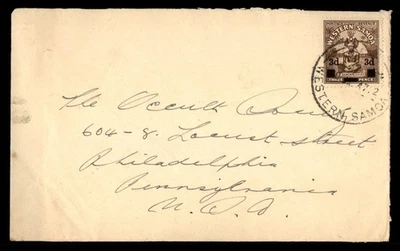 WESTERN SAMOA
3d 3d
PENCE
WESTERN SAMOA
The Occult
604-8. Locust Street
Philadelphia
Pennsylvania
U.S.A.